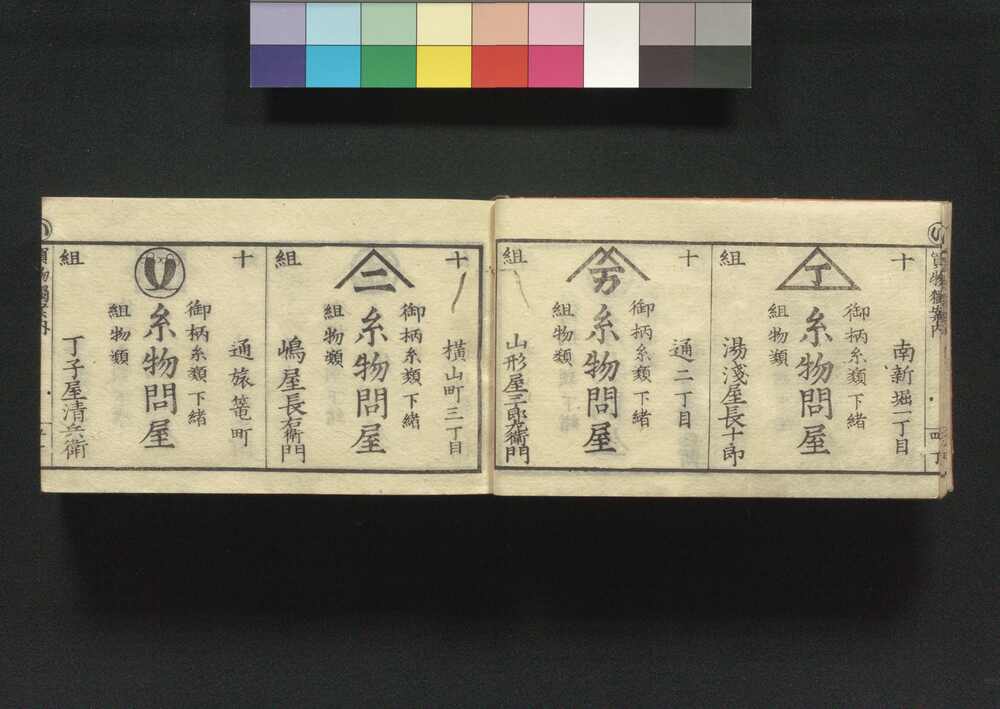 買物獨案内
十
組
丁
南新堀一丁目
御柄糸類下緒
糸物問屋
組物類
湯淺屋長十郎
十
組
万
通二丁目
御柄糸類下緒
糸物問屋
組物類
山形屋三郎左衛門
十
組
二
横山町三丁目
御柄糸類下緒
糸物問屋
組物類
嶋屋長右衛門
十
組
通旅篭町
御柄糸類下緒
糸物問屋
組物類
丁子屋清兵衛
買物獨案内